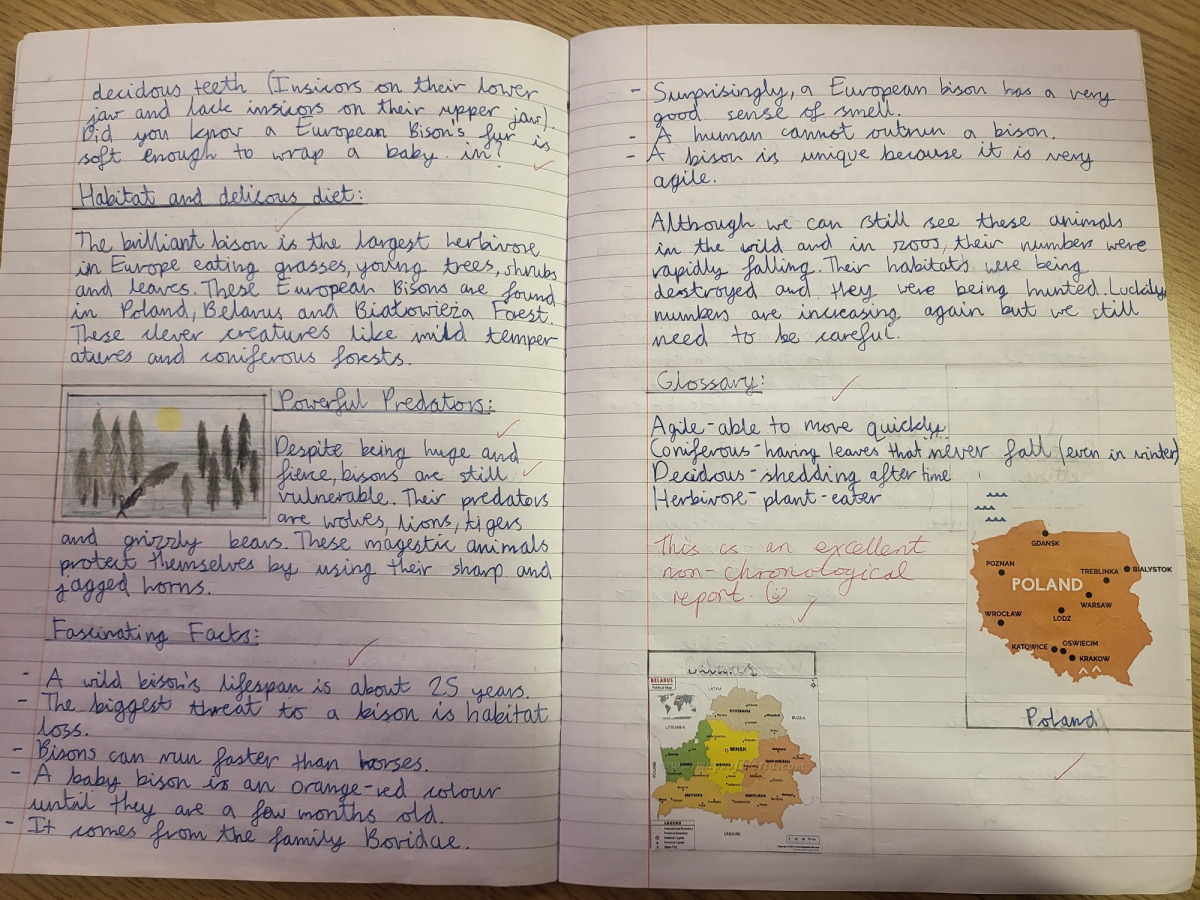 decidous teeth (Insicors on their lower
jaw and lack insicors on their upper jaw).
Did you know a European Bison's fur is
soft enough to wrap a baby in?
Habitat and delicous diet:
The brilliant bison is the largest herbivore
in Europe eating grasses, young trees, shrubs
and leaves. These European Bisons are found
in Poland, Belarus and Białowieża Forest.
These clever creatures like mild temper
atures and coniferous forests.
Powerful Predators:
Despite being huge and
fierce, bisons are still
vulnerable. Their predators
are wolves, lions, tigers
and grizzly bears. These magestic animals
protect themselves by using their sharp and
jagged horns.
Fascinating Facts:
- A wild bison's lifespan is about 25 years.
- The biggest threat to a bison is habitat
loss.
- Bisons can run faster than horses.
- A baby bison is an orange-red colour
until they are a few months old.
- It comes from the family Bovidae.
- Surprisingly, a European bison has a very
good sense of smell.
- A human cannot outrun a bison.
- A bison is unique because it is very
agile.
Although we can still see these animals
in the wild and in zoos, their numbers were
rapidly falling. Their habitats were being
destroyed and they were being hunted. Luckily,
numbers are increasing again but we still
need to be careful.
Glossary:
Agile-able to move quickly
Coniferous-having leaves that never fall (even in winter)
Decidous-shedding after time
Herbivore-plant-eater
This is an excellent
non-chronological
report.
GDANSK
POZNAN
TREBLINKA
BIALYSTOK
POLAND
WARSAW
WROCLAW
LODZ
KATOWICE
OSWIECIM
KRAKOW
Poland
BELARUS
Political Map
LATVIA
LITHUANIA
RUSSIA
MINSK
POLAND
UKRAINE
LEGEND